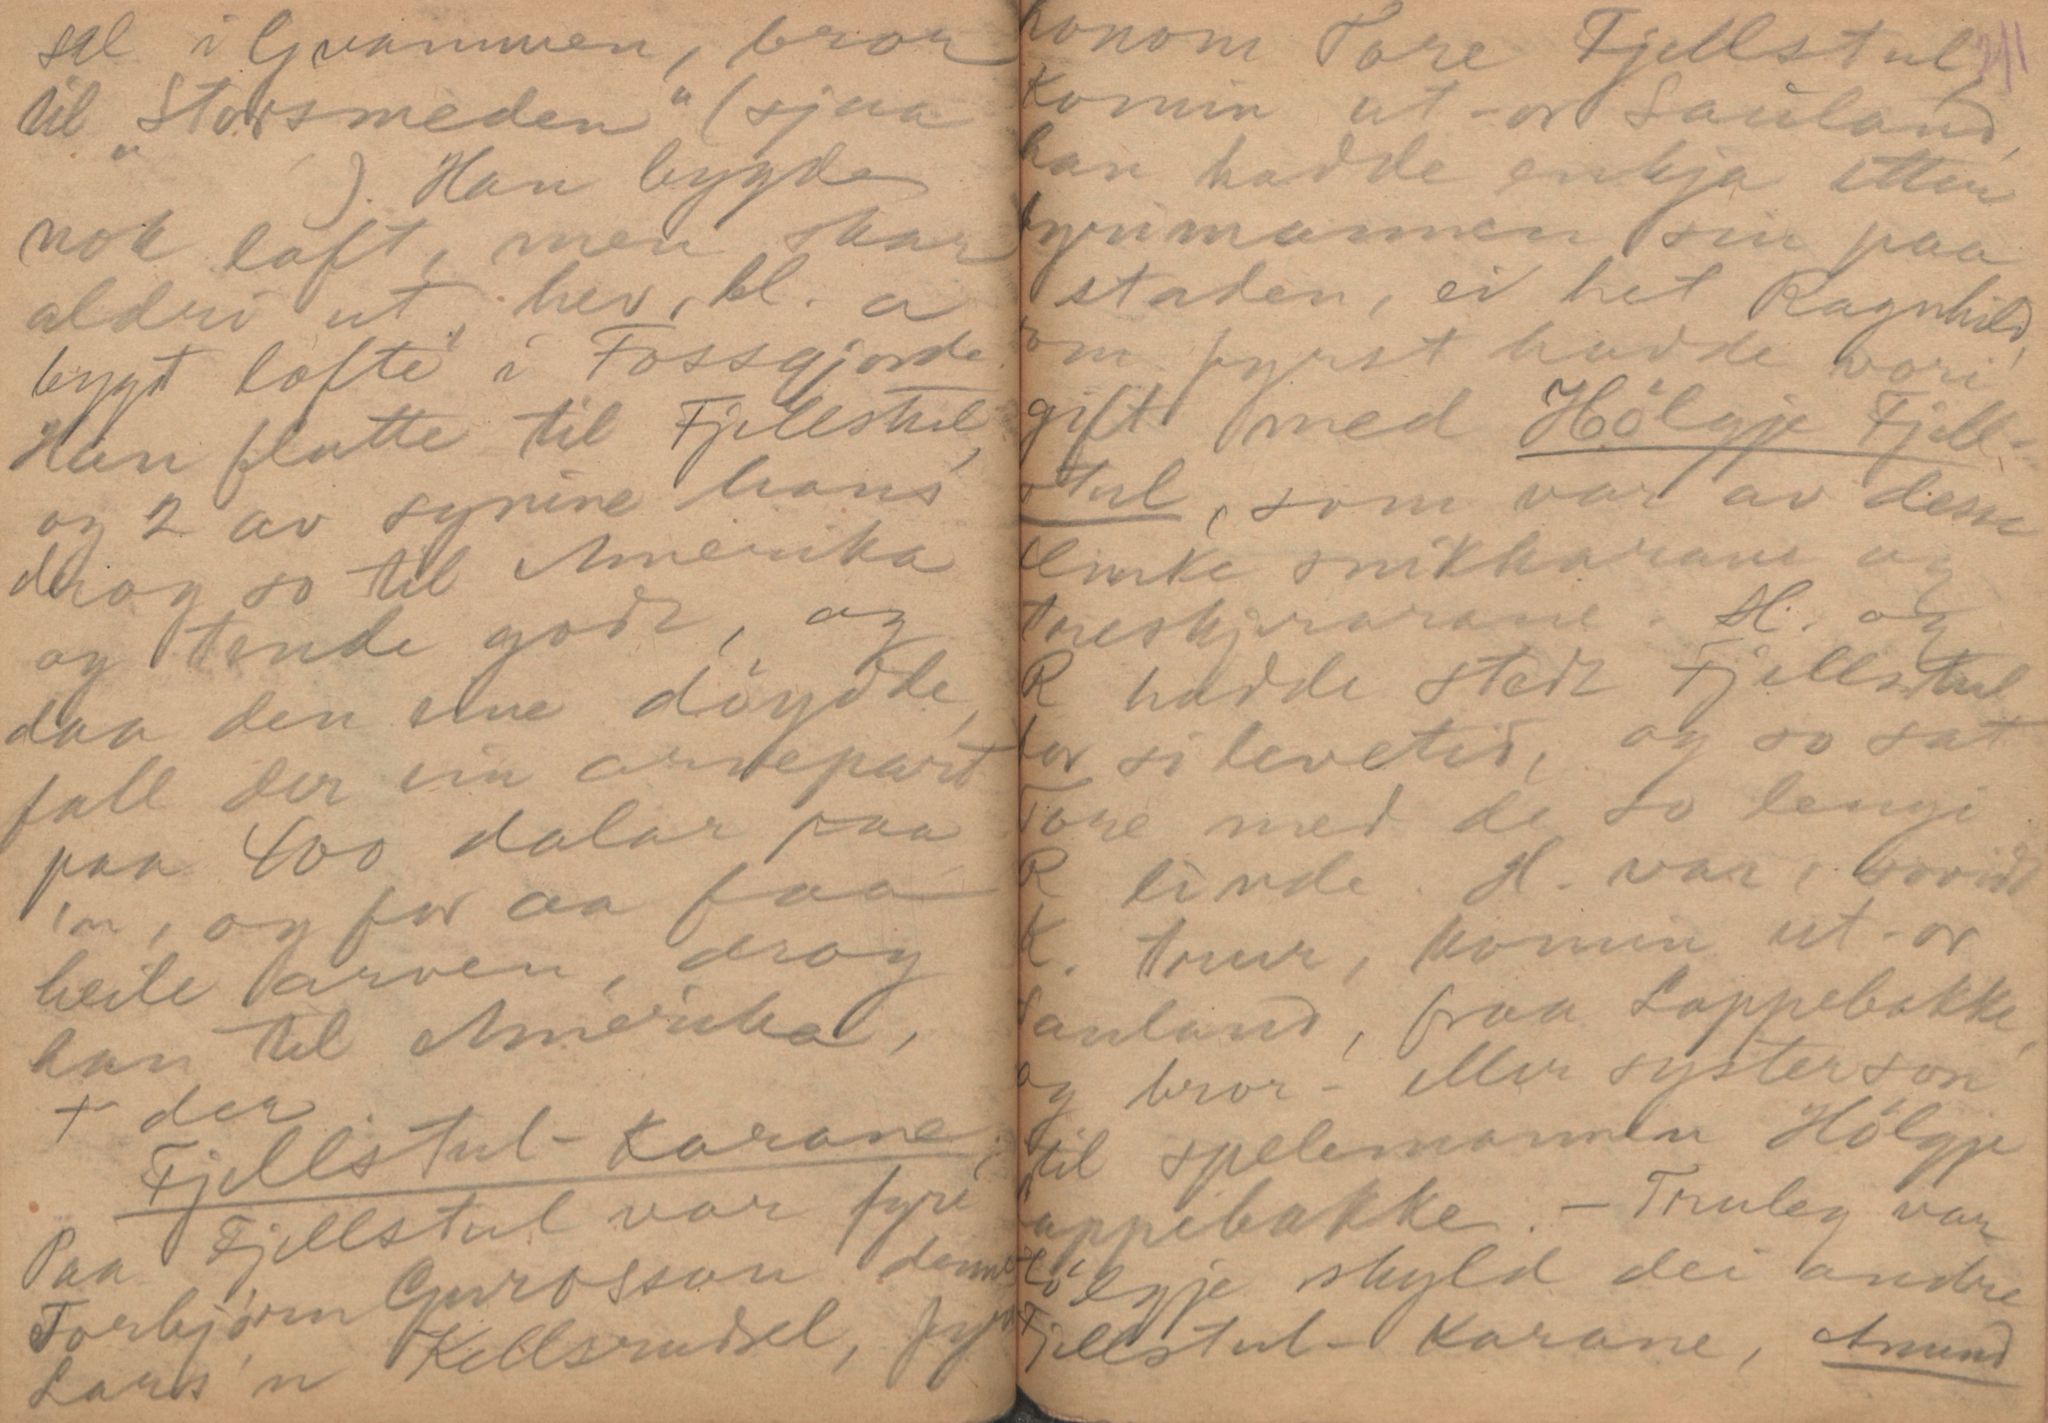 sel i Gvammen, bror
til "Storsmeden" (sjaa
"      ). Han bygde
nok loft, men skar
aldri ut, hev, bl. a
bygt lofte i Fossgjorde.
Han flutte til Fjellstul,
og 2 av synine hans
drog so til Amerika
og tende godt, og
daa den eine döydde,
fall der ein arvepart
paa 400 dalar paa
'n, og for aa faa
heile arven, drog
han til Amerika,
+ der
Fjellstul-Karane.
Paa Fjellstul var fyri
Torbjörn Gurosson denne
Lars'n Kellsrudsel, fyri
honom Tore Fjellstul, 211
Komin ut-or Sauland,
han hadde enkja etter
fyrimannen sin paa
staden, ei het Ragnhild,
som fyrst hadde vori
gift med Hölgje Fjell-
stul, som var av desse
flinke snikkarane og
treskjerarane. H. og
R hadde stedt Fjellstul
for si levetid, og so sat
Tore med de so lengi
R livde. H. var, sovidt
K. truur, komin ut-or
Sauland, fraa Loppebakke,
og bror- eller systerson
til spelemannen Hölgje
Loppebakke. - Truleg var
Hölgje skyld dei andre
Fjellstul-Karane, Amund